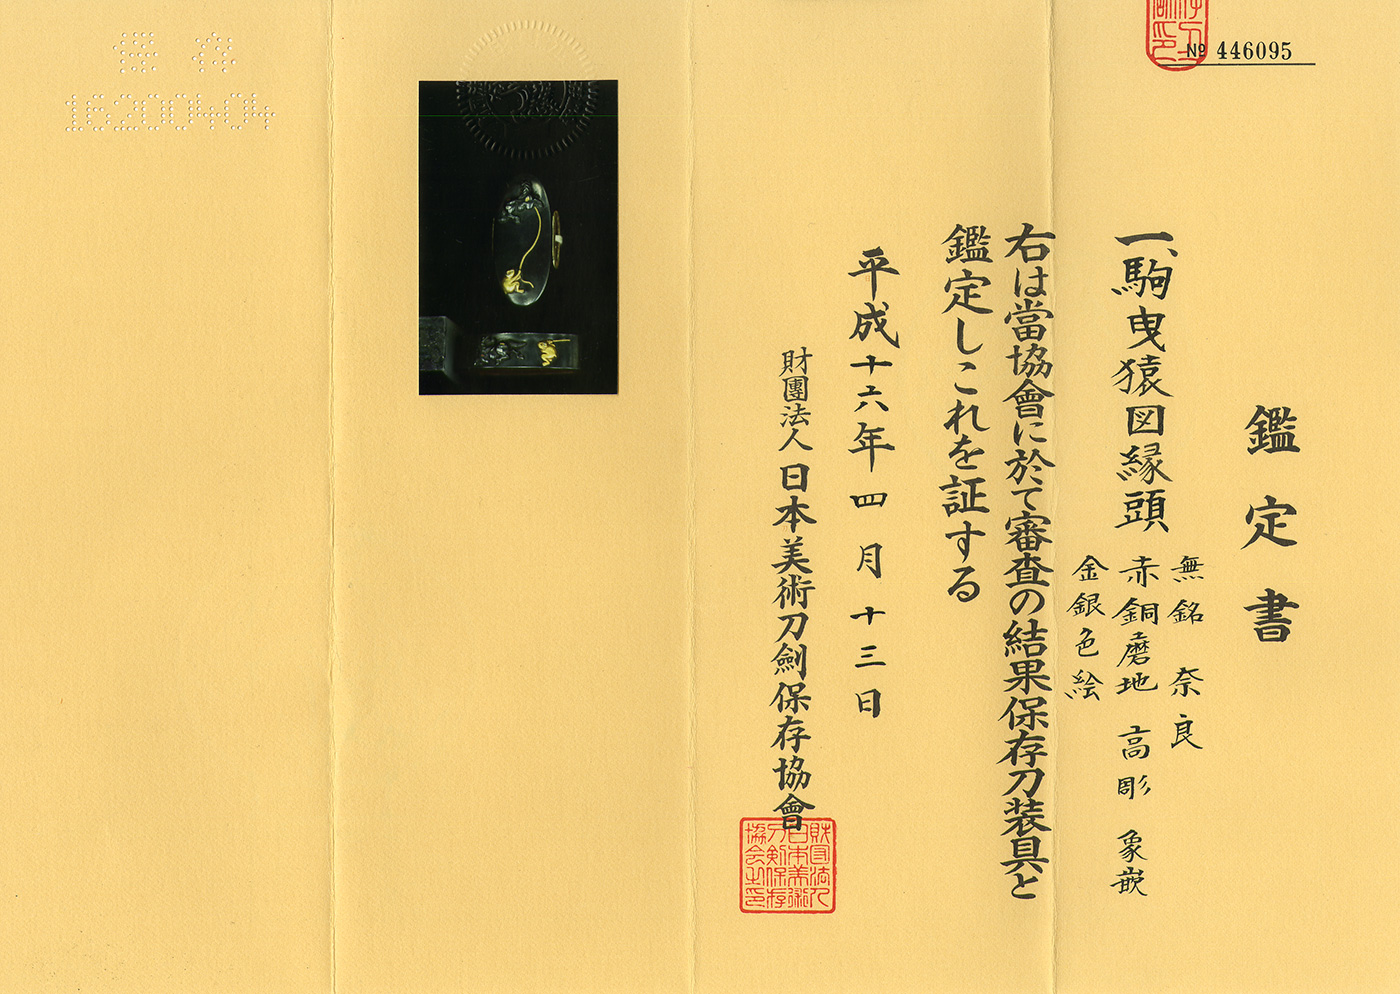 № 446095
鑑定書
一、駒曳猿図縁頭
無銘 奈良
赤銅磨地 高彫 象嵌
金銀色絵
右は當協會に於て審査の結果保存刀装具と
鑑定しこれを証する
平成十六年四月十三日
財團法人日本美術刀劍保存協會
財団法人日本美術刀剣保存協会之印
16200404